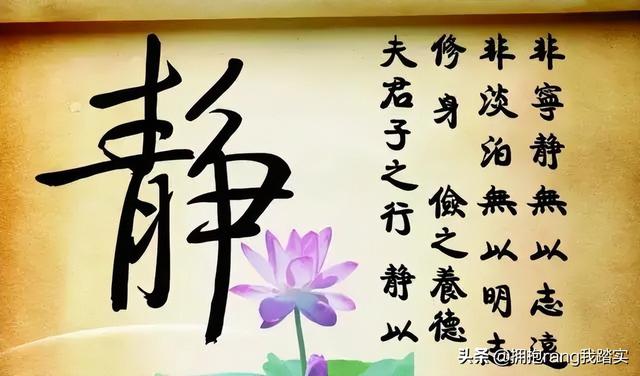 静
夫君子之行 静以
修身 儉之養德
非淡泊無以明志
非寧静無以志遠
头条 @拥抱rang我踏实